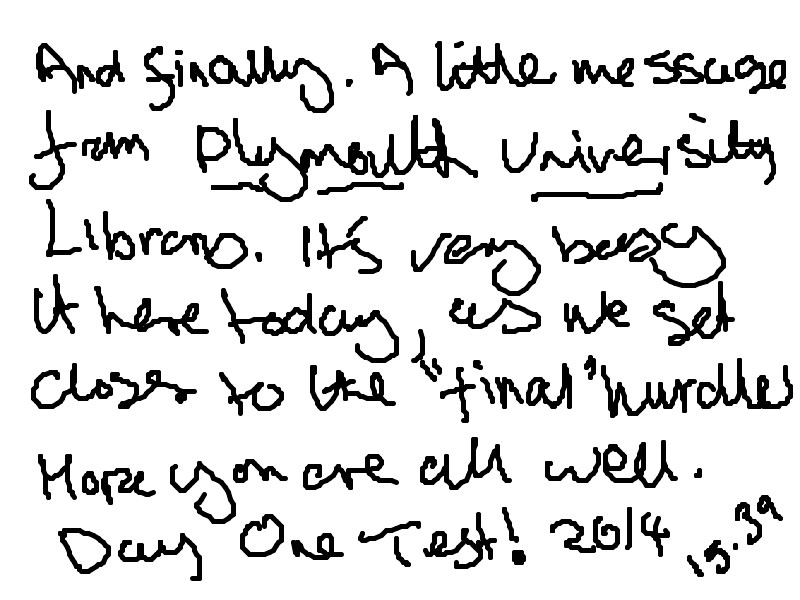 And finally. A little message
from Plymouth University
Library. It's very busy
it here today, as we get
closer to the "final" hurdles
Hope you are all well.
Day One Test! 2014 15.39